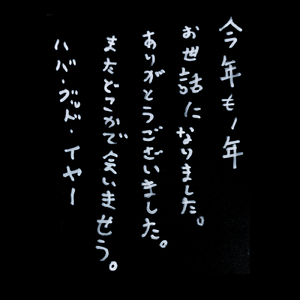 今年も1年
お世話になりました。
ありがとうございました。
またどこかで会いませう。
ハバ・グッド・イヤー